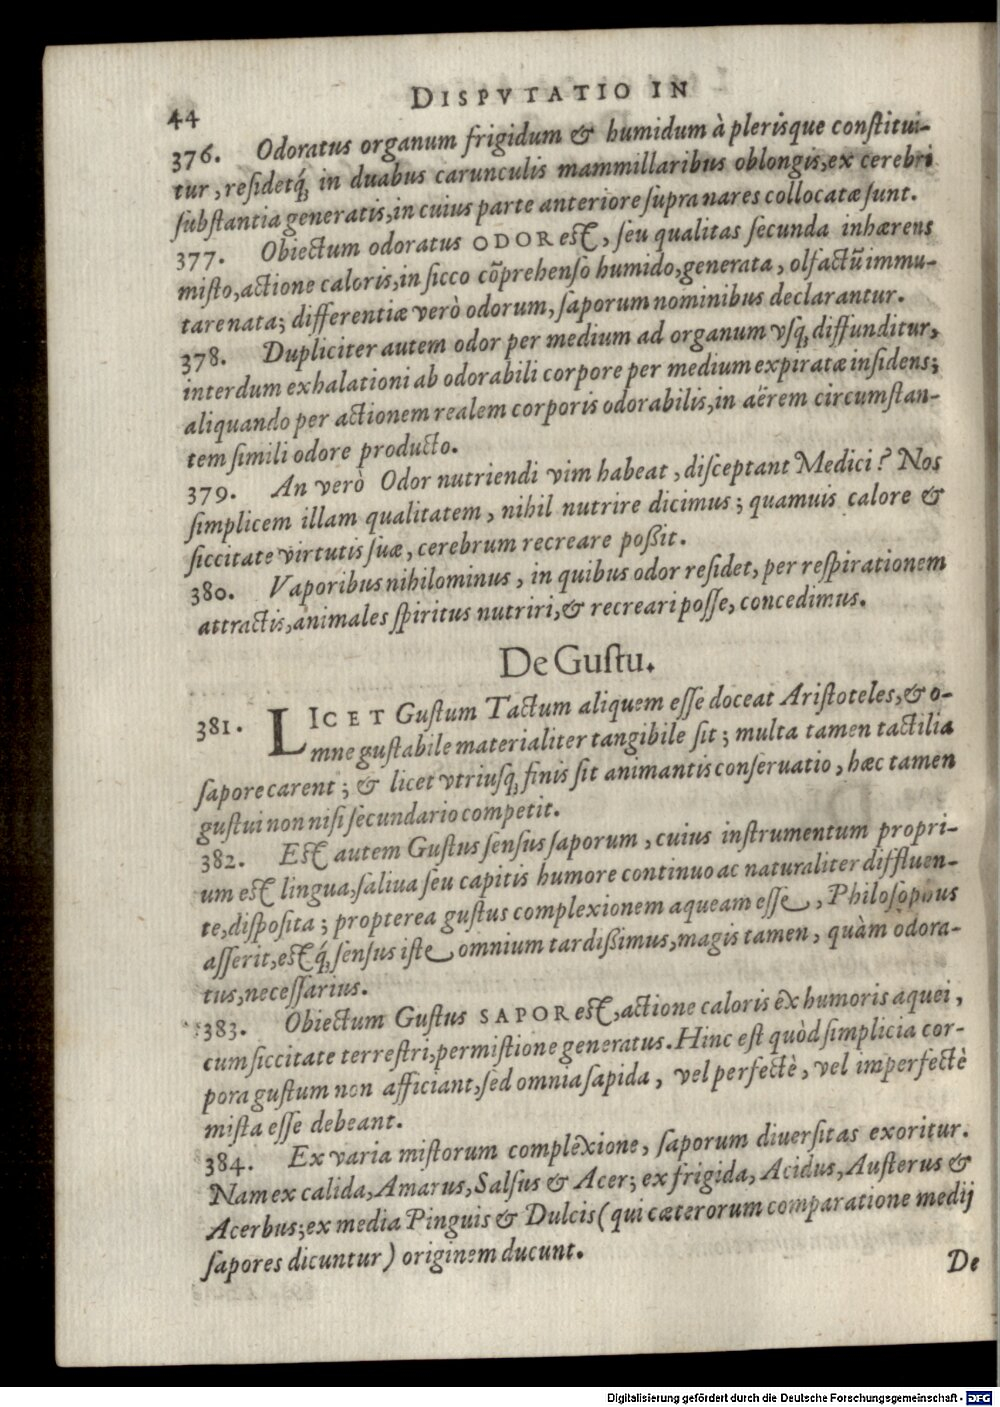 44
DISPVTATIO IN
376. Odoratus organum frigidum & humidum à plerisque constitui-
tur, residetq́; in duabus carunculis mammillaribus oblongis, ex cerebri
substantia generatis, in cuius parte anteriore supra nares collocatæ sunt.
377. Obiectum odoratus ODOR est, seu qualitas secunda inhærens
misto, actione caloris, in sicco cõprehenso humido, generata, olfactũ immu-
tare nata; differentiæ verò odorum, saporum nominibus declarantur.
378. Dupliciter autem odor per medium ad organum vsq; diffunditur,
interdum exhalationi ab odorabili corpore per medium expiratæ insidens;
aliquando per actionem realem corporis odorabilis, in aërem circumstan-
tem simili odore producto.
379. An verò Odor nutriendi vim habeat, disceptant Medici? Nos
simplicem illam qualitatem, nihil nutrire dicimus; quamuis calore &
siccitate virtutis suæ, cerebrum recreare poßit.
380. Vaporibus nihilominus, in quibus odor residet, per respirationem
attractis, animales spiritus nutriri, & recreari posse, concedimus.
De Gustu.
381. LICET Gustum Tactum aliquem esse doceat Aristoteles, & o-
mne gustabile materialiter tangibile sit; multa tamen tactilia
sapore carent; & licet vtriusq; finis sit animantis conseruatio, hæc tamen
gustui non nisi secundario competit.
382. Est autem Gustus sensus saporum, cuius instrumentum propri-
um est lingua, saliua seu capitis humore continuo ac naturaliter diffluen-
te, disposita; propterea gustus complexionem aqueam esse, Philosophus
asserit, estq́; sensus iste omnium tardißimus, magis tamen, quàm odora-
tus, necessarius.
383. Obiectum Gustus SAPOR est, actione caloris ex humoris aquei,
cum siccitate terrestri, permistione generatus. Hinc est quòd simplicia cor-
pora gustum non afficiant, sed omnia sapida, vel perfectè, vel imperfectè
mista esse debeant.
384. Ex varia mistorum complexione, saporum diuersitas exoritur.
Nam ex calida, Amarus, Salsus & Acer; ex frigida, Acidus, Austerus &
Acerbus; ex media Pinguis & Dulcis (qui cæterorum comparatione medij
sapores dicuntur) originem ducunt.
De
Digitalisierung gefördert durch die Deutsche Forschungsgemeinschaft - DFG